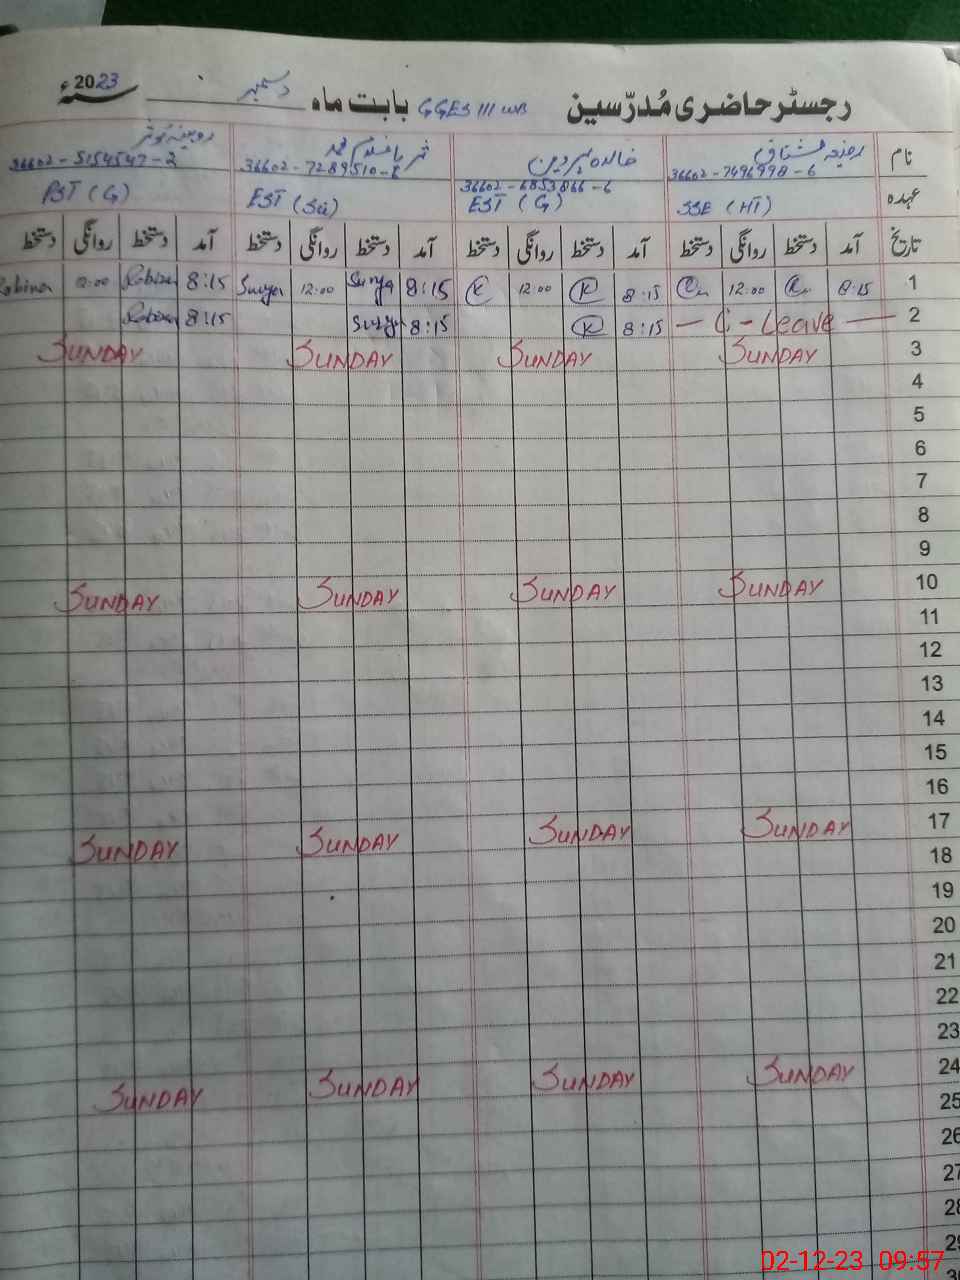 رجسٹر حاضری مُدرّسین GGES 111 WB بابت ماہ دسمبر سنہ 2023ء
نام رضیہ مشتاق خالدہ پروین روبینہ کوثر
36602-7496998-6 36602-6853866-6 36602-7289510-8 36602-5154547-2
عہدہ SSE (HT) EST (G) EST (Sci) PST (G)
تاریخ آمد دستخط روانگی دستخط آمد دستخط روانگی دستخط آمد دستخط روانگی دستخط آمد دستخط روانگی دستخط
Robina 12:00 Robina 8:15 Surya 12:00 Surya 8:15 K 12:00 K 8:15 12:00 8:15 1
Robina 8:15 Surya 8:15 K 8:15 — C - Leave — 2
SUNDAY SUNDAY SUNDAY SUNDAY 3
4
5
6
7
8
9
SUNDAY SUNDAY SUNDAY SUNDAY 10
11
12
13
14
15
16
SUNDAY SUNDAY SUNDAY SUNDAY 17
18
19
20
21
22
23
SUNDAY SUNDAY SUNDAY SUNDAY 24
25
26
27
28
29
02-12-23 09:57